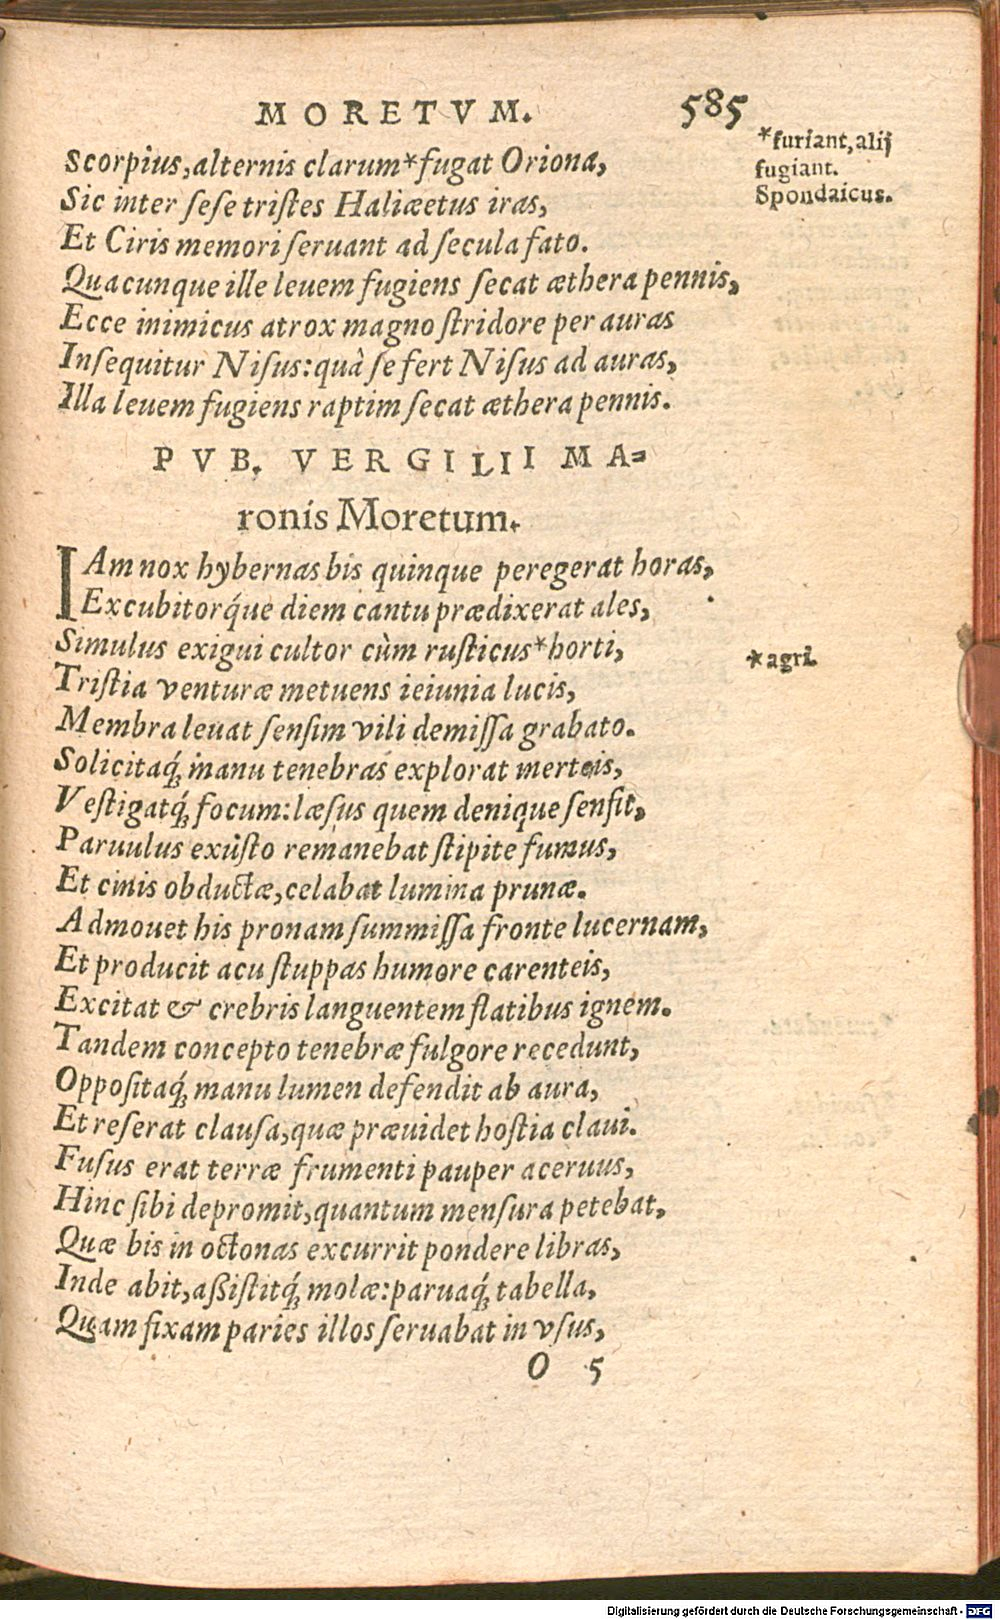 MORETVM. 585
Scorpius, alternis clarum* fugat Oriona,
*furiant, alij
fugiant.
Spondaicus.
Sic inter ſeſe triſtes Haliæetus iras,
Et Ciris memori ſeruant ad ſecula fato.
Quacunque ille leuem fugiens ſecat æthera pennis,
Ecce inimicus atrox magno ſtridore per auras
Inſequitur Niſus: quà ſe fert Niſus ad auras,
Illa leuem fugiens raptim ſecat æthera pennis.
PVB. VERGILII MA-
ronis Moretum.
IAm nox hybernas bis quinque peregerat horas,
Excubitorq́ue diem cantu prædixerat ales,
Simulus exigui cultor cùm ruſticus* horti,
*agri.
Triſtia venturæ metuens ieiunia lucis,
Membra leuat ſenſim vili demiſſa grabato.
Solicitaq́; manu tenebras explorat inerteis,
Veſtigatq́; focum: læſus quem denique ſenſit,
Paruulus exuſto remanebat ſtipite fumus,
Et cinis obductæ, celabat lumina prunæ.
Admouet his pronam ſummiſſa fronte lucernam,
Et producit acu ſtuppas humore carenteis,
Excitat & crebris languentem flatibus ignem.
Tandem concepto tenebræ fulgore recedunt,
Oppoſitaq́; manu lumen defendit ab aura,
Et reſerat clauſa, quæ præuidet hoſtia claui.
Fuſus erat terræ frumenti pauper aceruus,
Hinc ſibi depromit, quantum menſura petebat,
Quæ bis in octonas excurrit pondere libras,
Inde abit, aßiſtitq́; molæ: paruaq́; tabella,
Quam fixam paries illos ſeruabat in vſus,
O 5
Digitalisierung gefördert durch die Deutsche Forschungsgemeinschaft - DFG